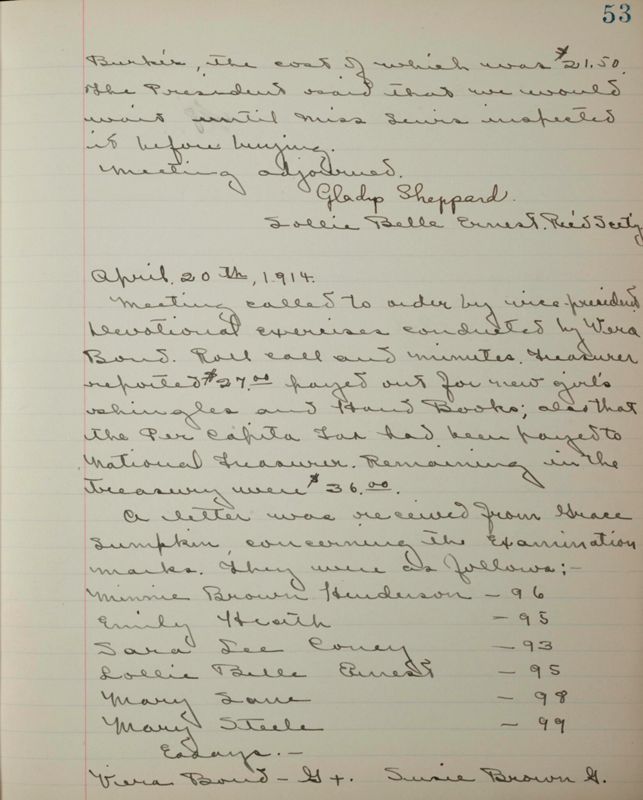 53
Burke's, the cost of which was $21.50.
The President said that we would
wait until Miss Lewis inspected
it before buying.
Meeting adjourned.
Gladys Sheppard.
Lollie Belle Ernest. Rec'd Sect'y
April 20th, 1914.
Meeting called to order by vice-president
Devotional exercises conducted by Vera
Bond. Roll call and minutes. Treasurer
reported $27.00 payed out for new girl's
shingles and Hand Books; also that
the Per Capita Tax had been payed to
National Treasurer. Remaining in the
treasury were $36.00.
A letter was received from Grace
Lumpkin, concerning the Examination
marks. They were as follows;-
Minnie Brown Henderson - 96
Emily Heath - 95
Sara Lee Coney - 93
Lollie Belle Ernest - 95
Mary Lane - 98
Mary Steele - 99
Essays. -
Vera Bond - G+. Susie Brown G.